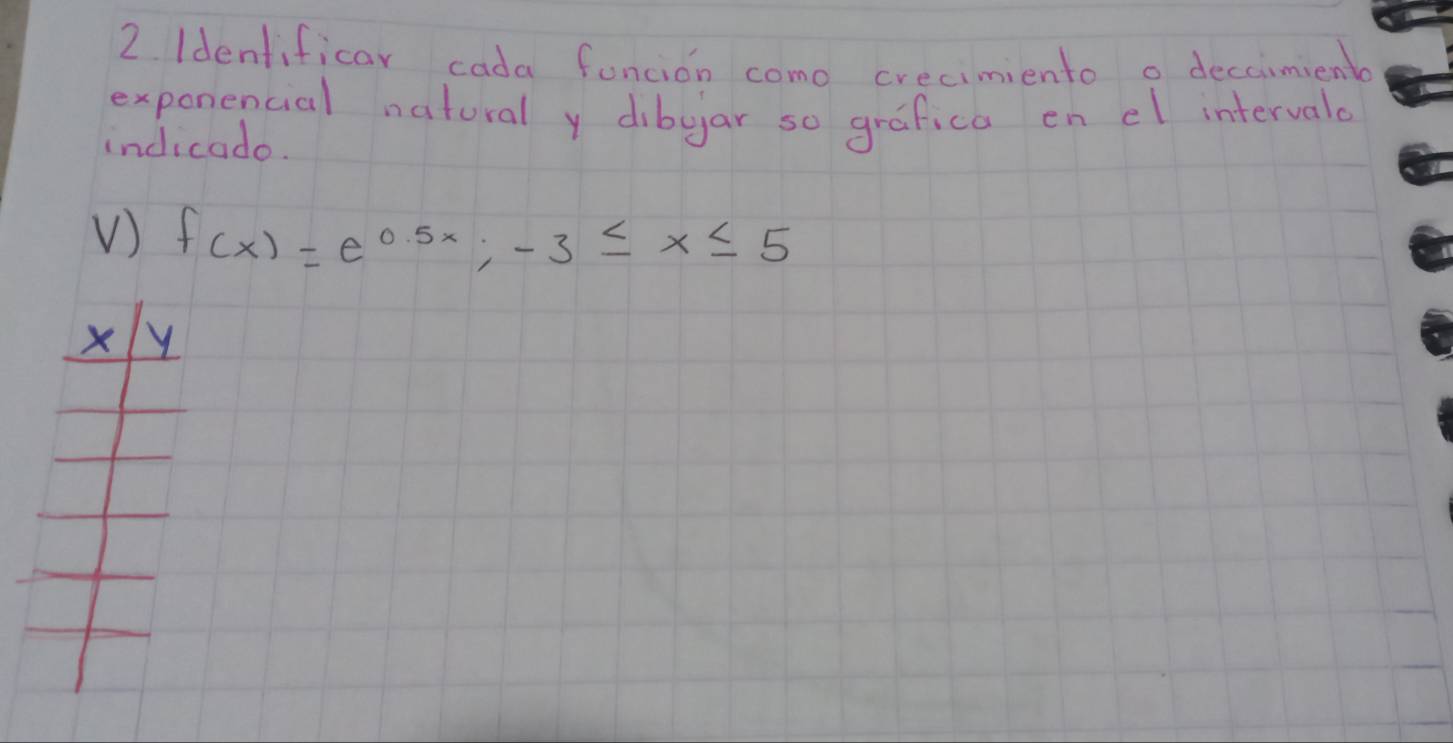 2. Identificar cada función como crecimiento o decaimiento
exponencial natural y dibujar su gráfica en el intervalo
indicado.
V) f(x) = e^0.5x ; -3 ≤ x ≤ 5
x y